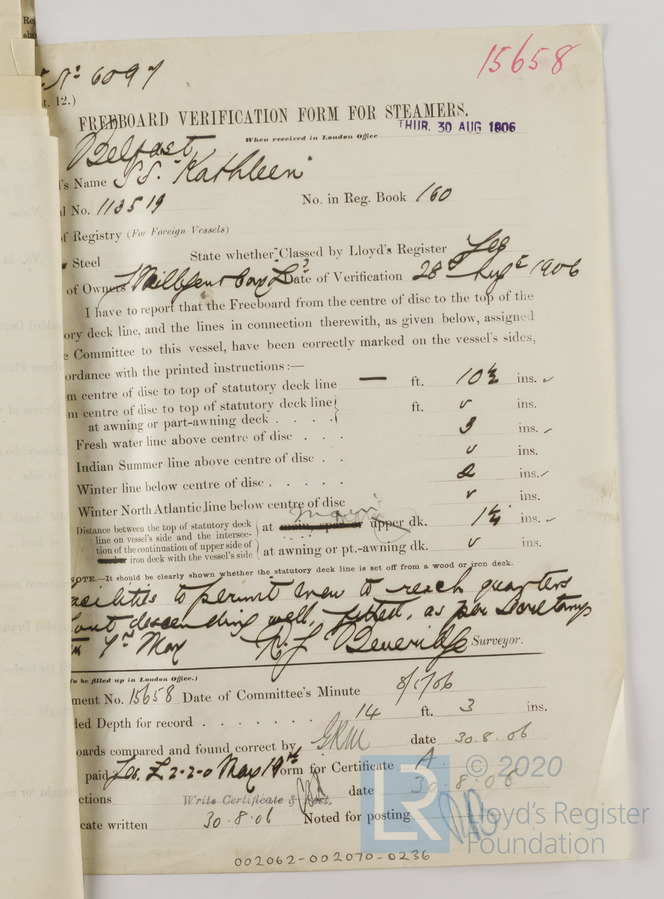 15658
No 6097
t. 12.)
FREEBOARD VERIFICATION FORM FOR STEAMERS.
When received in London Office
THUR. 30 AUG 1906
Belfast
's Name S.S. "Kathleen"
l No. 113519 No. in Reg. Book 160
of Registry (For Foreign Vessels)
Steel State whether Classed by Lloyd's Register Yes
of Owners Ld Date of Verification 28th Augt 1906
I have to report that the Freeboard from the centre of disc to the top of the
ory deck line, and the lines in connection therewith, as given below, assigned
e Committee to this vessel, have been correctly marked on the vessel's sides,
ordance with the printed instructions :—
m centre of disc to top of statutory deck line — ft. 10½ ins.
m centre of disc to top of statutory deck line ft. ins.
at awning or part-awning deck . . . .
Fresh water line above centre of disc . . . 3 ins.
Indian Summer line above centre of disc . . ins.
Winter line below centre of disc . . . . . 2 ins.
Winter North Atlantic line below centre of disc ins.
Distance between the top of statutory deck
line on vessel's side and the intersec-
tion of the continuation of upper side of
iron deck with the vessel's side
at main upper dk. 1¼ ins.
at awning or pt.-awning dk. ins.
NOTE.—It should be clearly shown whether the statutory deck line is set off from a wood or iron deck.
acilities to permit crew to reach quarters
out descending well, fitted, as per Secretarys
7th May R. J. Beveridge Surveyor.
To be filled up in London Office.)
ment No. 15658 Date of Committee's Minute 8/5/06
led Depth for record . . . . . . . 14 ft. 3 ins.
oards compared and found correct by GRM date 30.8.06
paid Yes. £2-2-0 May 19th Form for Certificate A
ctions Write Certificate & Post. date 30.8.06
cate written 30.8.06 Noted for posting
002062-002070-0236
LR
© 2020
Lloyd's Register
Foundation